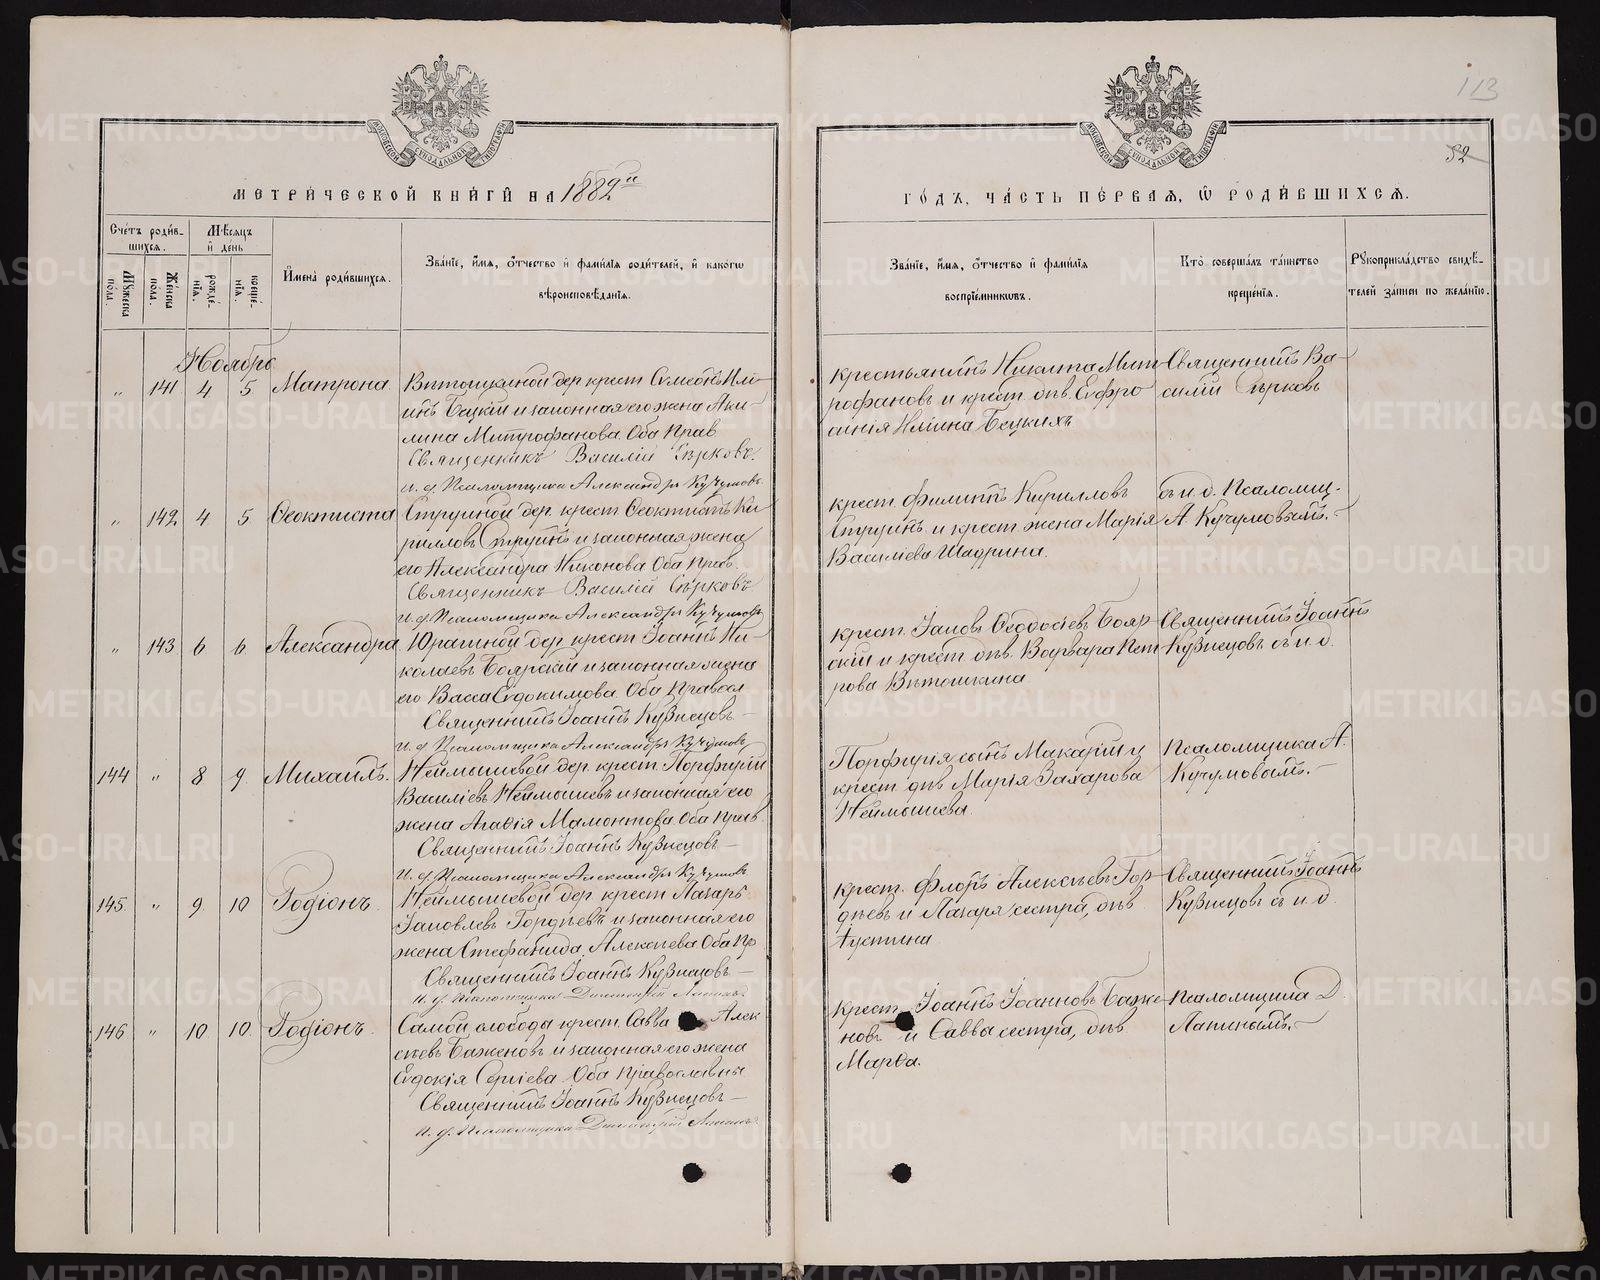 113
52
МОСКОВСКОЙ СѴНОДАЛЬНОЙ ТИПОГРАФІИ
МОСКОВСКОЙ СѴНОДАЛЬНОЙ ТИПОГРАФІИ
МЕТРИ́ЧЕСКОЙ КНИ́ГИ НА 1882й
ГО́ДЪ, ЧА́СТЬ ПЕ́РВАЯ, Ѿ РОДИ́ВШИХСЯ.
Сче́тъ роди́в-
шихся.
Мѣ́сяцъ
и де́нь
Му́жеска
по́ла.
Же́нска
пола.
рожде́-
нія.
креще́-
нія.
Имена́ роди́вшихся.
Зва́ніе, и́мя, о́тчество и фами́лія роди́телей, и како́гѡ
вѣроисповѣ́данія.
Зва́ніе, и́мя, о́тчество и фами́лія
воспріе́мниковъ.
Кто̀ соверша́лъ та́инство
креще́нія.
Рукоприкла́дство свидѣ́-
телей за́писи по жела́нію.
Ноябрь
„ 141 4 5 Матрона
Вѣтошкиной дер. крест. Симеонъ Иль-
инъ Бецкій и законная его жена Аки-
лина Митрофанова. Оба Прав
Священникъ Василій Сѣрковъ.
и. д. Псаломщика Александръ Кучумовъ
крестьянинъ Никита Мит-
рофановъ и крест. дѣв. Евфро
синія Ильина Бецкихъ
Священникъ Ва-
силій Сѣрковъ
„ 142 4 5 Ѳеоктиста
Струиной дер. крест. Ѳеоктистъ Ки-
рилловъ Струинъ и законная жена
его Александра Никонова Оба Прав.
Священникъ Василій Сѣрковъ
и. д. Псаломщика Александръ Кучумовъ
крест. Филиппъ Кирилловъ
Струинъ и крест. жена Марія
Васильева Шадрина.
съ и. д. Псаломщ.
А. Кучумовымъ.
„ 143 6 6 Александра
Юрагиной дер. крест. Іоаннъ Ни-
колаевъ Боярскій и законная жена
его Васса Евдокимова. Оба Правосл
Священникъ Іоаннъ Кузнецовъ
и. д. Псаломщика Александръ Кучумовъ
крест. Іаковъ Ѳеодосіевъ Бояр-
скій и крест. дѣв. Варвара Пет
рова Вѣтошкина
Священникъ Іоаннъ
Кузнецовъ съ и. д.
144 „ 8 9 Михаилъ.
Неймышевой дер. крест. Порфирій
Васильевъ Неймышевъ и законная его
жена Агаѳія Мамонтова. Оба Прав
Священникъ Іоаннъ Кузнецовъ
и. д. Псаломщика Александръ Кучумовъ
Порфирія сынъ Макарій и
крест. дѣв. Марія Захарова
Неймышева.
Псаломщика А.
Кучумовымъ.
145 „ 9 10 Родіонъ
Неймышевой дер. крест. Лазарь
Іаковлевъ Гордѣевъ и законная его
жена Стефанида Алексѣева Оба Пр
Священникъ Іоаннъ Кузнецовъ
и. д. Псаломщика Димитрій Лапинъ
крест. Флоръ Алексѣевъ Гор-
дѣевъ и Лазаря сестра, дѣв
Іустина
Священникъ Іоаннъ
Кузнецовъ съ и. д.
146 „ 10 10 Родіонъ
Самой, слобода крест. Савва Алек
сѣевъ Баженовъ и законная его жена
Евдокія Сергіева Оба Православны
Священникъ Іоаннъ Кузнецовъ
и. д. Псаломщика Димитрій Лапинъ
Крест. Іоаннъ Іоанновъ Баже-
новъ и Саввы сестра, дѣв
Марѳа.
Псаломщика Д.
Лапинымъ.
METRIKI.GASO-URAL.RU